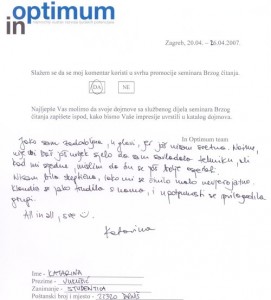 inoptimum
Zagreb, 20.04.- 26.04.2007.
Slažem se da se moj komentar koristi u svrhu promocije seminara Brzog čitanja.
DA NE
Najljepše Vas molimo da svoje dojmove za službenog dijela seminara Brzog
čitanja zapišete ispod, kako bismo Vaše impresije uvrstili u katalog dojmova.
In Optimum team
Jako sam zadovoljna, u glavi, jer još nisam sretna. Naime,
još uvijek da sam savladala tehniku, ali
kod mi sjedne, mislim da ću se još bolje osjećati.
Nisam bila skeptična, iako mi se činilo malo nevjerojatno.
Klaudio se jako trudio s nama, i u potpunosti se prilagodio
grupi.
All in all, sve
Katarina
Ime - KATARINA
Prezime - VUKUŠIĆ
Zanimanje - STUDENTICA
Poštanski broj i mjesto - 22320 DRNIŠ